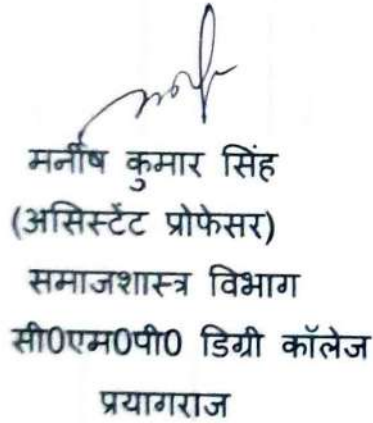 मनीष कुमार सिंह
(असिस्टेंट प्रोफेसर)
समाजशास्त्र विभाग
सी0एम0पी0 डिग्री कॉलेज
प्रयागराज